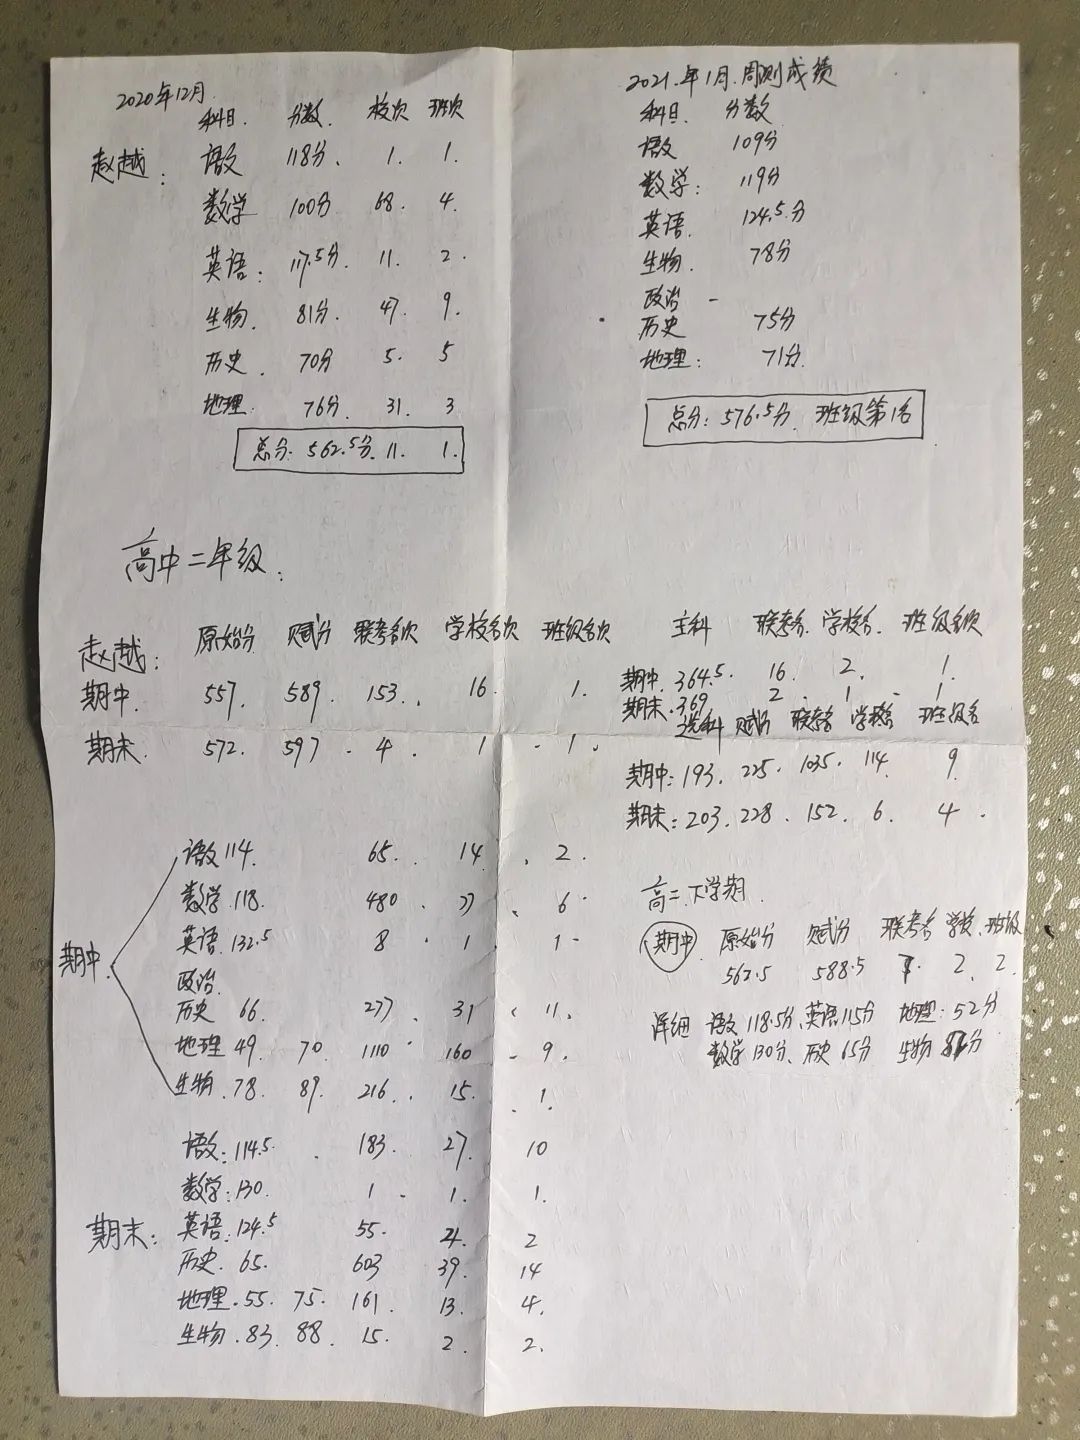 2020年12月
科目. 分数. 校次 班次
赵越: 语文 118分. 1. 1.
数学 100分 68. 4.
英语: 117.5分. 11. 2.
生物. 81分. 47. 9.
历史. 70分 5. 5
地理. 76分. 31. 3
总分: 562.5分. 11. 1.
2021.年1月.周测成绩
科目. 分数
语文 109分
数学: 119分
英语. 124.5.分
生物. 78分
政治 -
历史 75分
地理: 71分.
总分: 576.5分. 班级第1名
高中二年级:
赵越: 原始分 赋分 联考名次 学校名次 班级名次
期中. 557. 589. 153.. 16. 1.
期末. 572. 597 . 4. 1 . 1.
主科 联考名. 学校名. 班级名次
期中. 364.5. 16. 2. 1.
期末. 369 2 . 1 - 1
选科 赋分 联考名 学校名 班级名
期中: 193. 225. 1035. 114. 9.
期末: 203. 228. 152. 6. 4.
期中.
语文 114. 65.. 14 . 2.
数学. 118. 480 . . 6.
英语. 132.5 8 . 1. 1-
政治.
历史 66. 277 . 31 . 11.
地理 49. 70. 1110 . 160 - 9.
生物. 78. 89. 216.. 15. . 1.
期末:
语文: 114.5. . 183. 27. 10
数学: 130. 1 - 1. 1.
英语: 124.5 55. 2
历史. 65. 603 39. 14
地理. 55. 75. 161. 13. 4.
生物. 83. 88. 15. 2. 2.
高二.下学期.
期中. 原始分 赋分 联考名 学校. 班级
562.5 588.5 2. 2.
详细 语文 118.5分、英语115分 地理: 52分
数学130分、历史 65分 生物 分